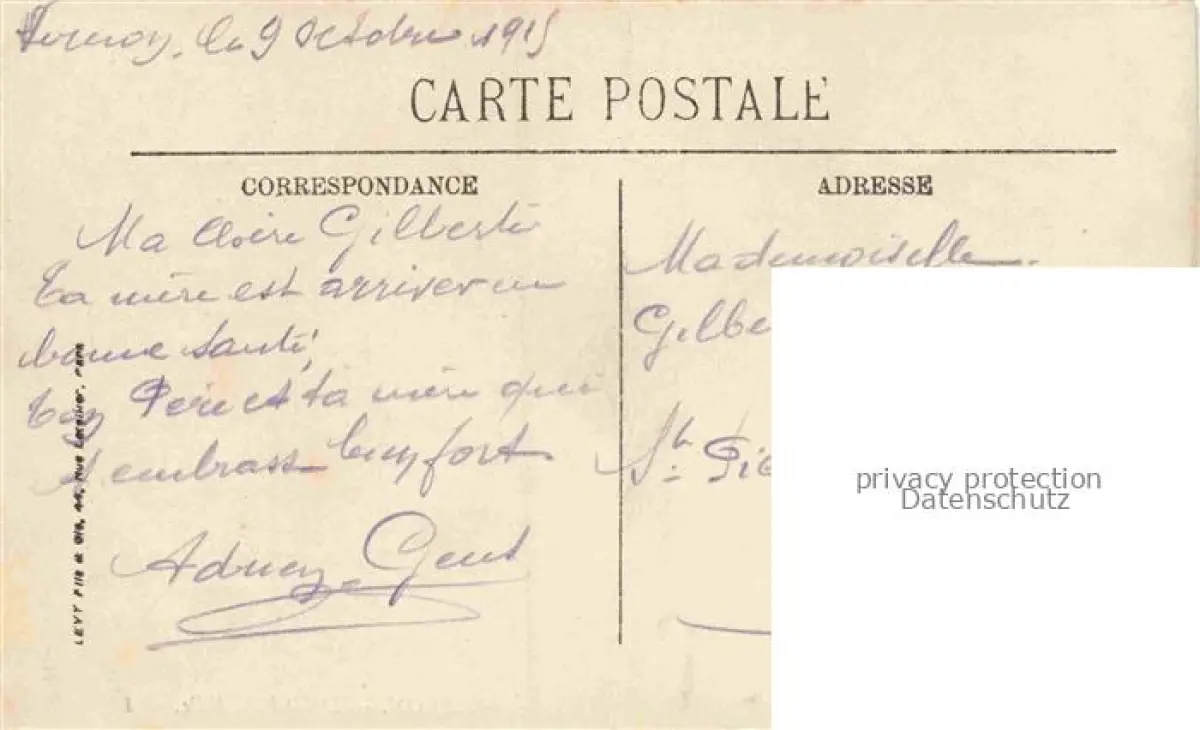 le 9 Octobre 1915
CARTE POSTALE
CORRESPONDANCE
ADRESSE
Ma Chère Gilberte
Ta mère est arriver en
bonne santé,
Ton Père et ta mère qui
t'embrass bien fort
Gent
Mademoiselle
Gilbe
St. Pie
LEVY Fils et Cie, 44, Rue Letellier, Paris
privacy protection
Datenschutz